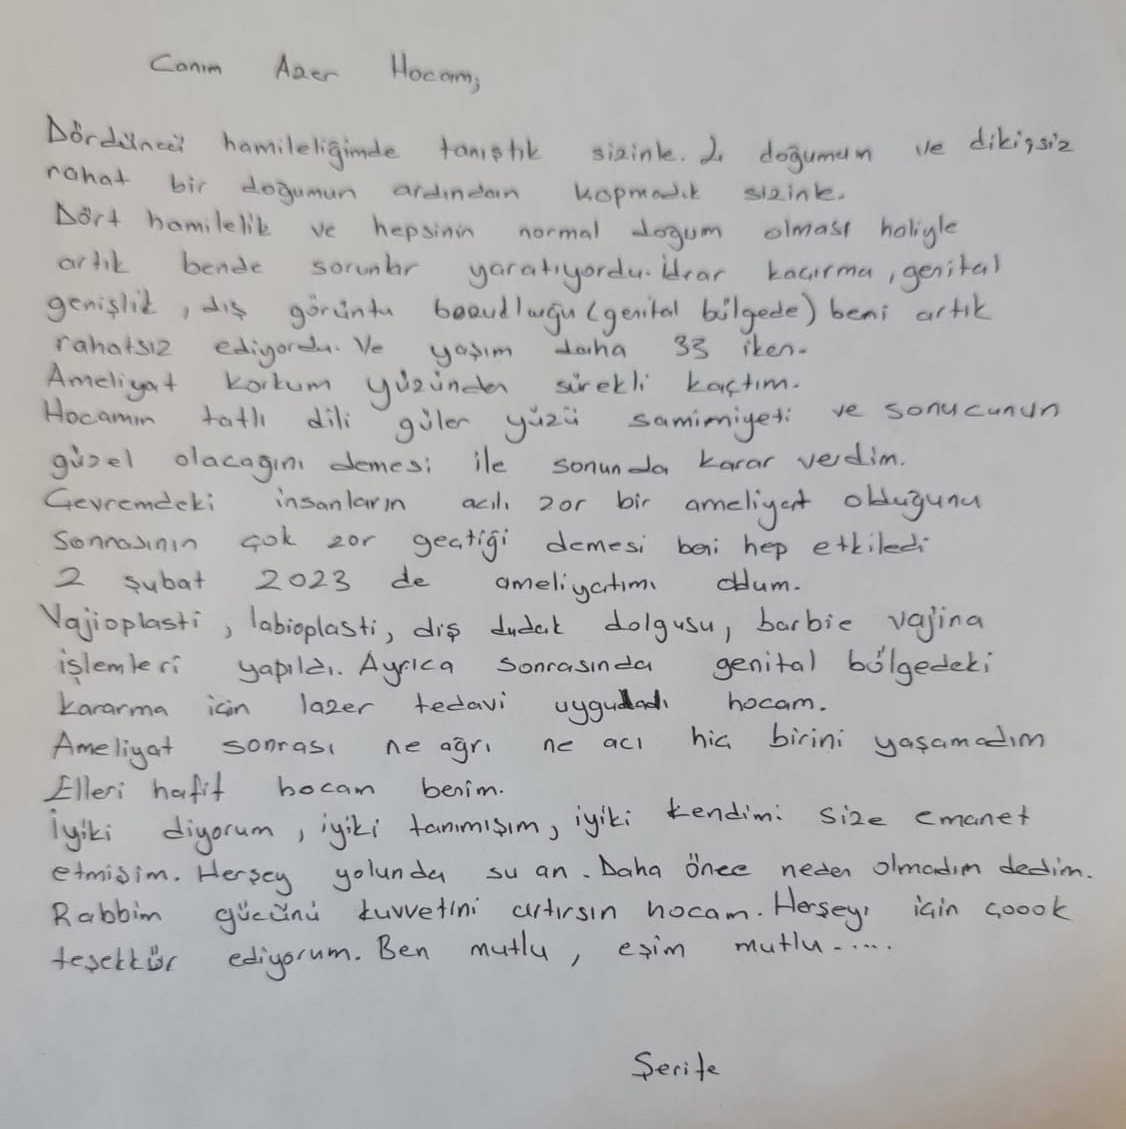 Canım Azer Hocam,
Dördüncü hamileliğimde tanıştık sizinle. 2. doğumum ve dikişsiz
rahat bir doğumun ardından kopmadık sizinle.
Dört hamilelik ve hepsinin normal doğum olması haliyle
artık bende sorunlar yaratıyordu. İdrar kaçırma, genital
genişlik, dış görüntü bozukluğu (genital bölgede) beni artık
rahatsız ediyordu. Ve yaşım daha 33 iken.
Ameliyat korkum yüzünden sürekli kaçtım.
Hocamın tatlı dili güler yüzü samimiyeti ve sonucunun
güzel olacağını demesi ile sonunda karar verdim.
Çevremdeki insanların acılı zor bir ameliyat olduğunu
Sonrasının çok zor geçtiği demesi beni hep etkiledi
2 şubat 2023 de ameliyatımı oldum.
Vajioplasti, labioplasti, dış dudak dolgusu, barbie vajina
işlemleri yapıldı. Ayrıca sonrasında genital bölgedeki
kararma için lazer tedavi uyguladı hocam.
Ameliyat sonrası ne ağrı ne acı hiç birini yaşamadım
Elleri hafif hocam benim.
İyiki diyorum, iyiki tanımışım, iyiki kendimi size emanet
etmişim. Herşey yolunda su an. Daha önce neden olmadım dedim.
Rabbim gücünü kuvvetini artırsın hocam. Herşey için çoook
teşekkür ediyorum. Ben mutlu, eşim mutlu.....
Şerife